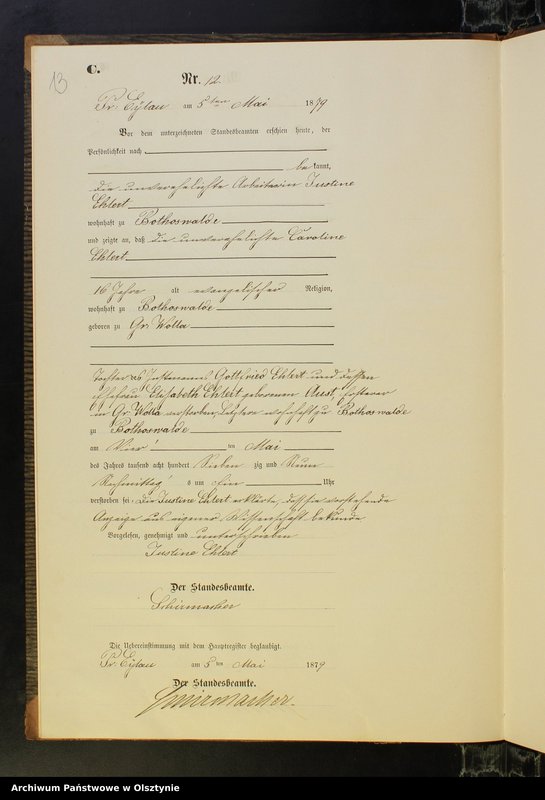 13
C.
Nr. 12.
Pr. Eylau am 5ten Mai 1879
Vor dem unterzeichneten Standesbeamten erschien heute, der
Persönlichkeit nach
bekannt,
die unverehelichte Arbeiterin Justine
Ehlert
wohnhaft zu Bothoswalde
und zeigte an, daß die unverehelichte Caroline
Ehlert
16 Jahre alt evangelischer Religion,
wohnhaft zu Bothoswalde
geboren zu Gr. Wolla
Tochter des Gottfried Ehlert und dessen
Ehefrau Elisabeth Ehlert geborenen Aust, Ersterer
in Gr. Wolla verstorben, Letztere wohnhaft zu Bothoswalde
zu Bothoswalde
am Vier ten Mai
des Jahres tausend acht hundert Sieben zig und Neun
Nachmittag s um Ein Uhr
verstorben sei. Die Justine Ehlert erklärte, daß sie vorstehende
Anzeige aus eigener Wissenschaft bekunde
Vorgelesen, genehmigt und unterschrieben
Justine Ehlert
Der Standesbeamte.
Schirmacher
Die Uebereinstimmung mit dem Hauptregister beglaubigt.
Pr. Eylau am 5ten Mai 1879
Der Standesbeamte.
Schirmacher.
Archiwum Państwowe w Olsztynie